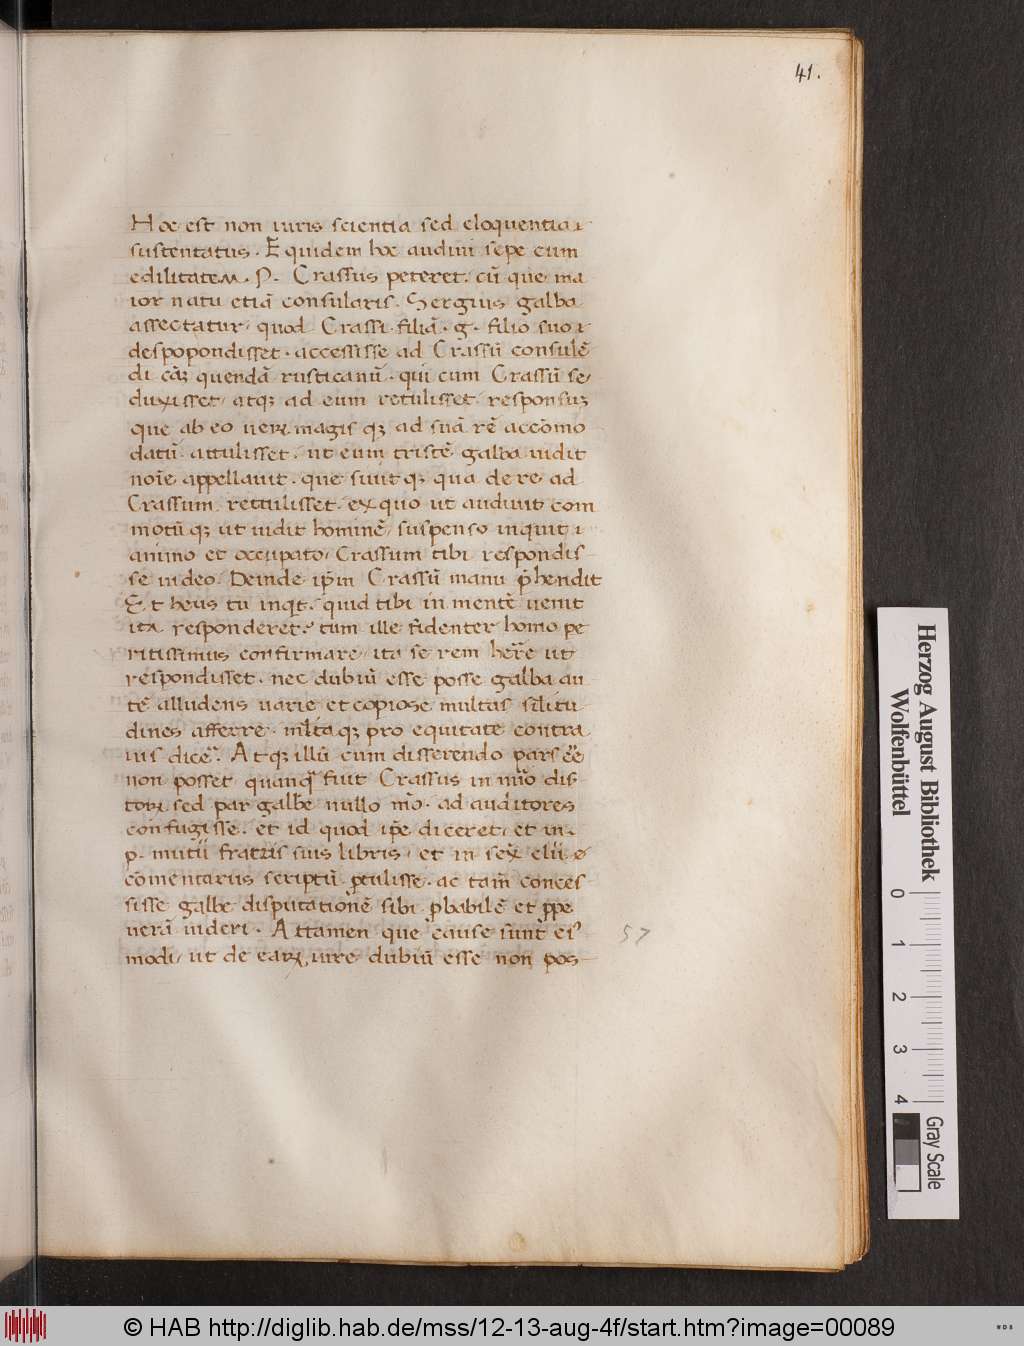 41.
Hoc est non iuris scientia sed eloquentia
sustentatus. Equidem hoc audiui sepe cum
edilitatem. P. Crassus peteret. cū que ma
ior natu etiā consularis. Sergius galba
assectatur, quod Crassi filiā. g. filio suo
despopondisset. accessisse ad Crassū consulē
di cāꝫ quendā rusticanū. qui cum Crassū se
duxisset, atqꝫ ad eum retulisset responsuꝫ
que ab eo ueꝝ magis qꝫ ad suā rē accōmo
datū attulisset. ut eum tristē galba uidit
noīe appellauit. que siuit qꝫ qua de re ad
Crassum rettulisset. ex quo ut audiuit com
motū qꝫ ut uidit hominē, suspenso inquit
animo et occupato, Crassum tibi respondis
se uideo. Deinde ip̄m Crassū manu p̄hendit
Et heus tu inqt. quid tibi in mentē uenit
ita responderet? tum ille fidenter homo pe
ritissimus confirmare, ita se rem her̄e ut
respondisset. nec dubiū esse posse galba au
tē alludens uarie et copiose multas silitu
dines afferre. mlta qꝫ pro equitate contra
ius dicē. Atqꝫ illū cum disserendo par eē
non posset quanqꝫ fuit Crassus in nūo dis
toꝝ sed par galbe nullo mō. ad auditores
confugisse. et id quod ip̄e diceret, et in
p. mutii fratris suis libris, et in sex̄ elii
cōmentariis scriptū ꝓtulisse. ac tam̄ conces
sisse galbe disputationē sibi ꝓbabilē et ꝓpe
uerā uideri. Attamen que cause sunt ei9
modi, ut de eaꝝ iure dubiū esse non pos
57
Herzog August Bibliothek
Wolfenbüttel
0 1 2 3 4
Gray Scale
© HAB http://diglib.hab.de/mss/12-13-aug-4f/start.htm?image=00089